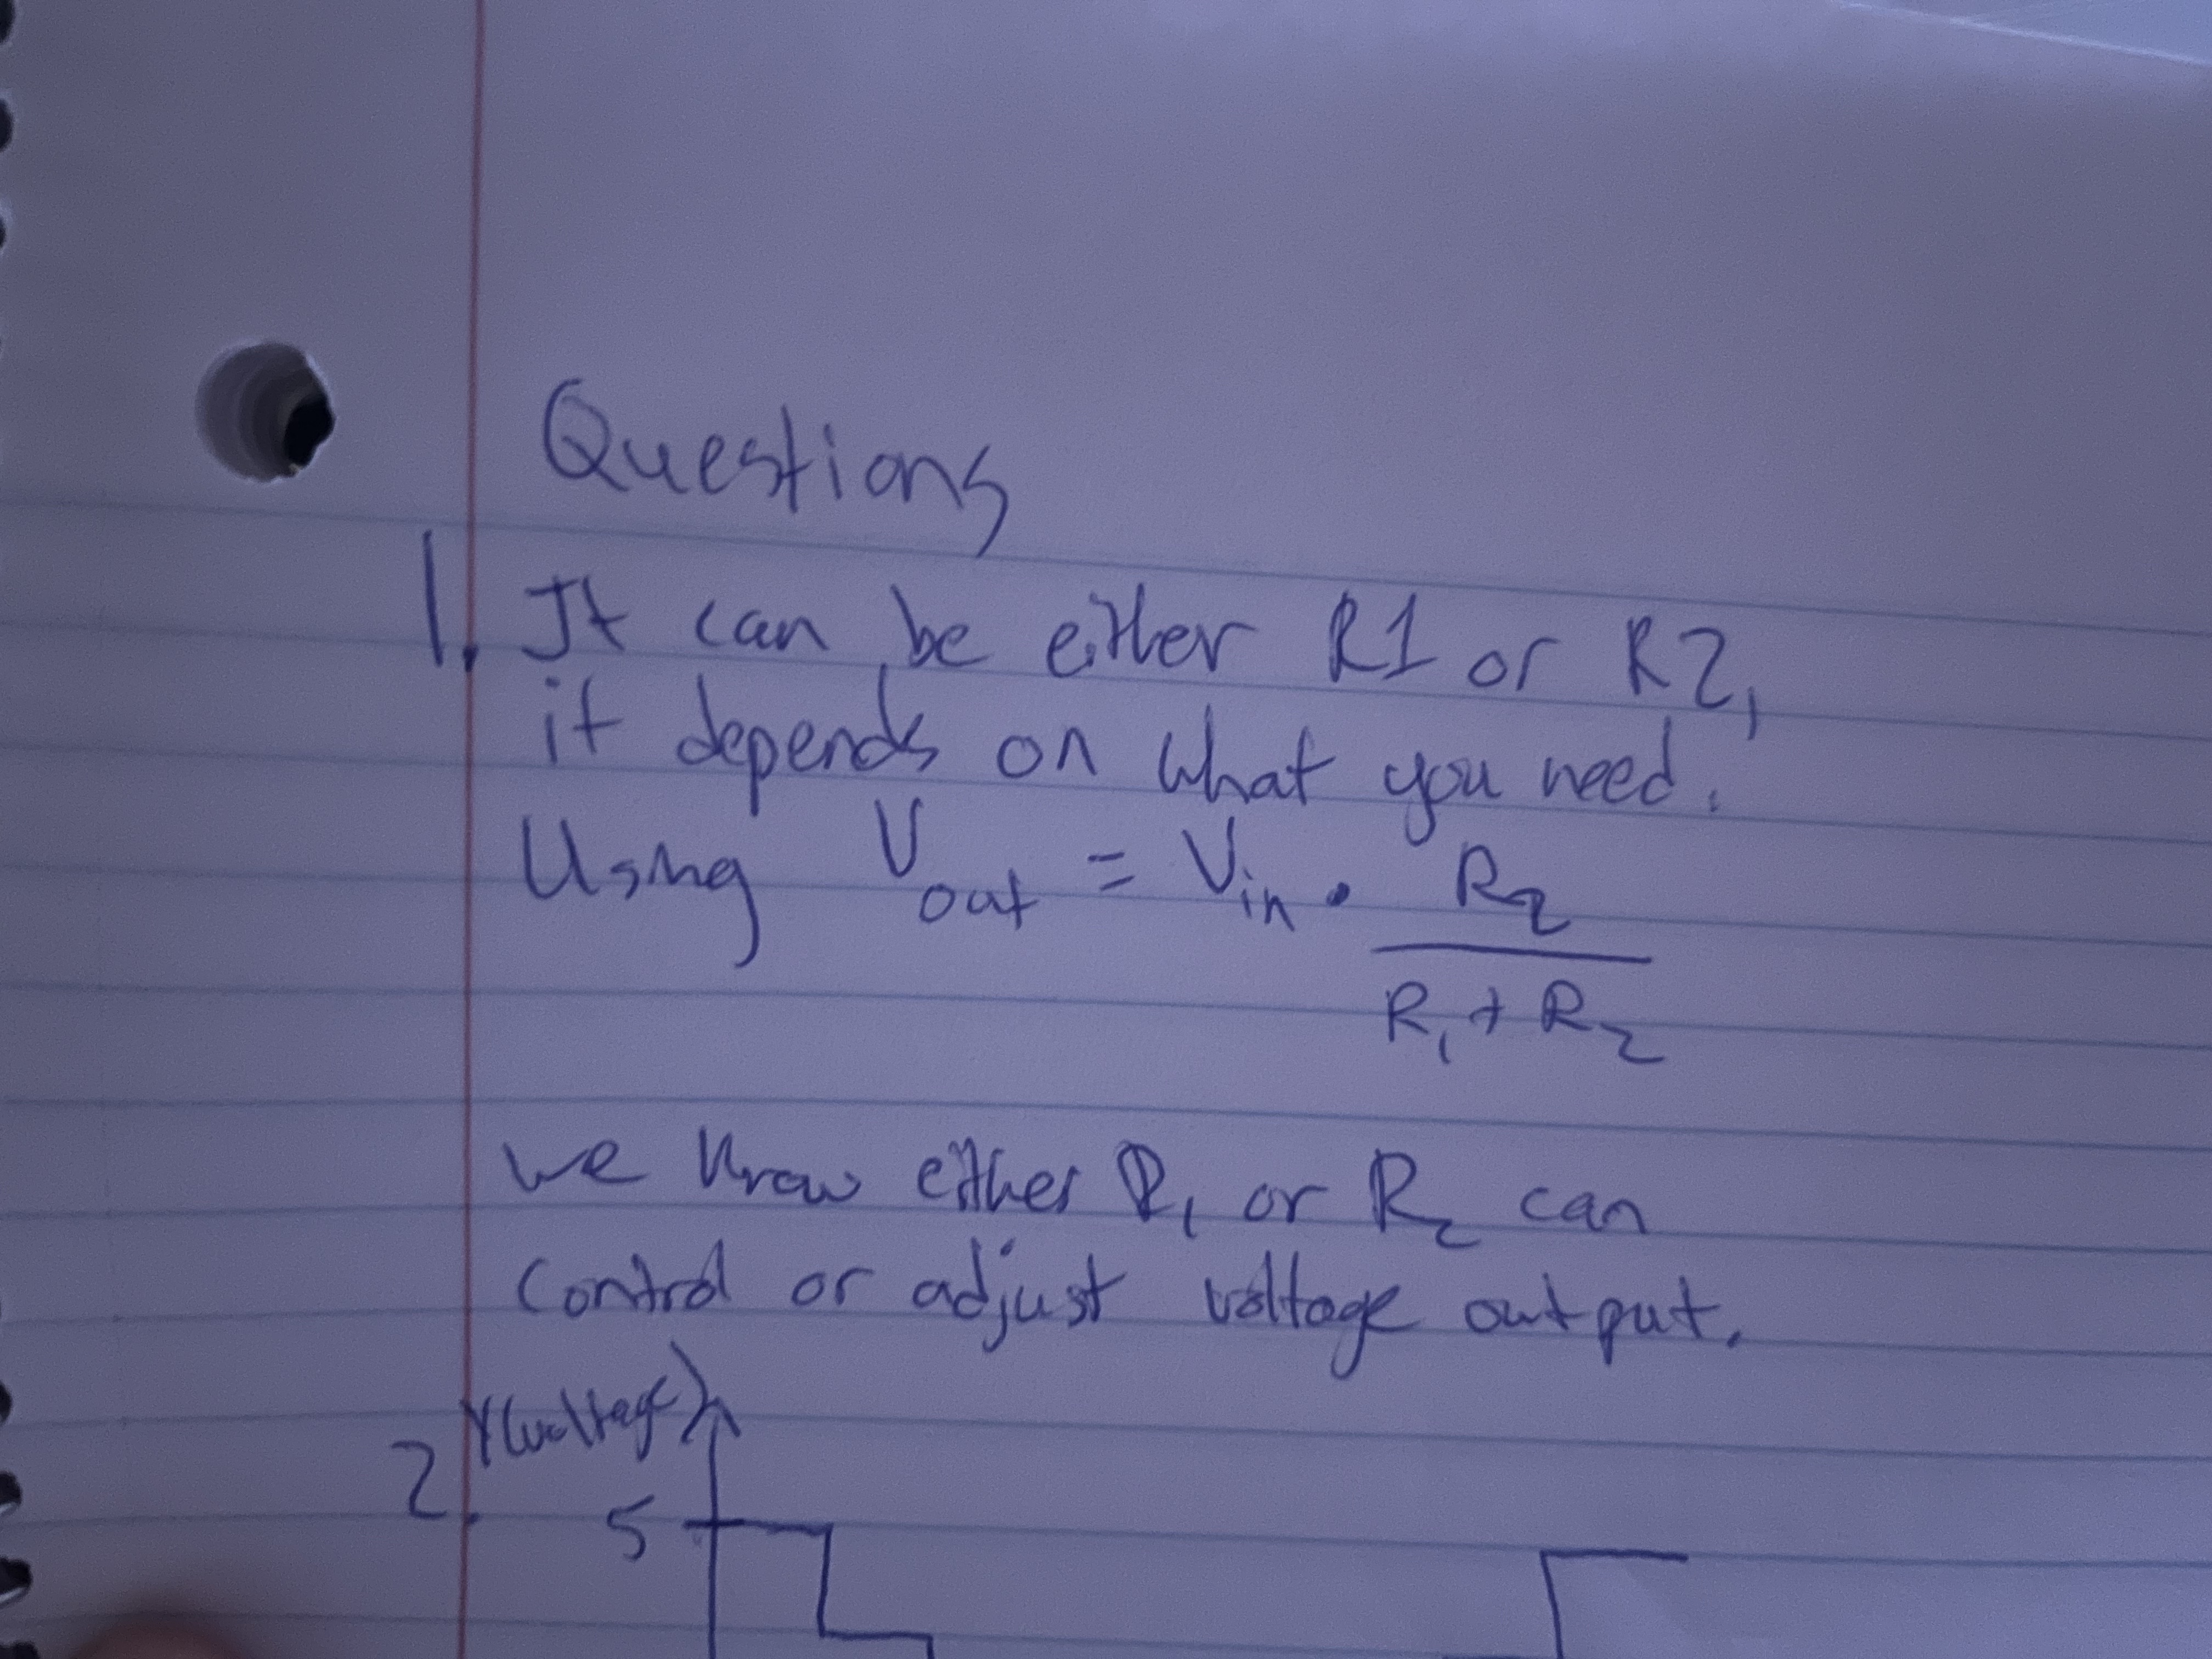 Questions
1. It can be either R1 or R2,
it depends on what you need.
Using V_out = V_in • R_2
R_1 + R_2
we know either R_1 or R_2 can
control or adjust voltage output.
Y(voltage)
2.
5